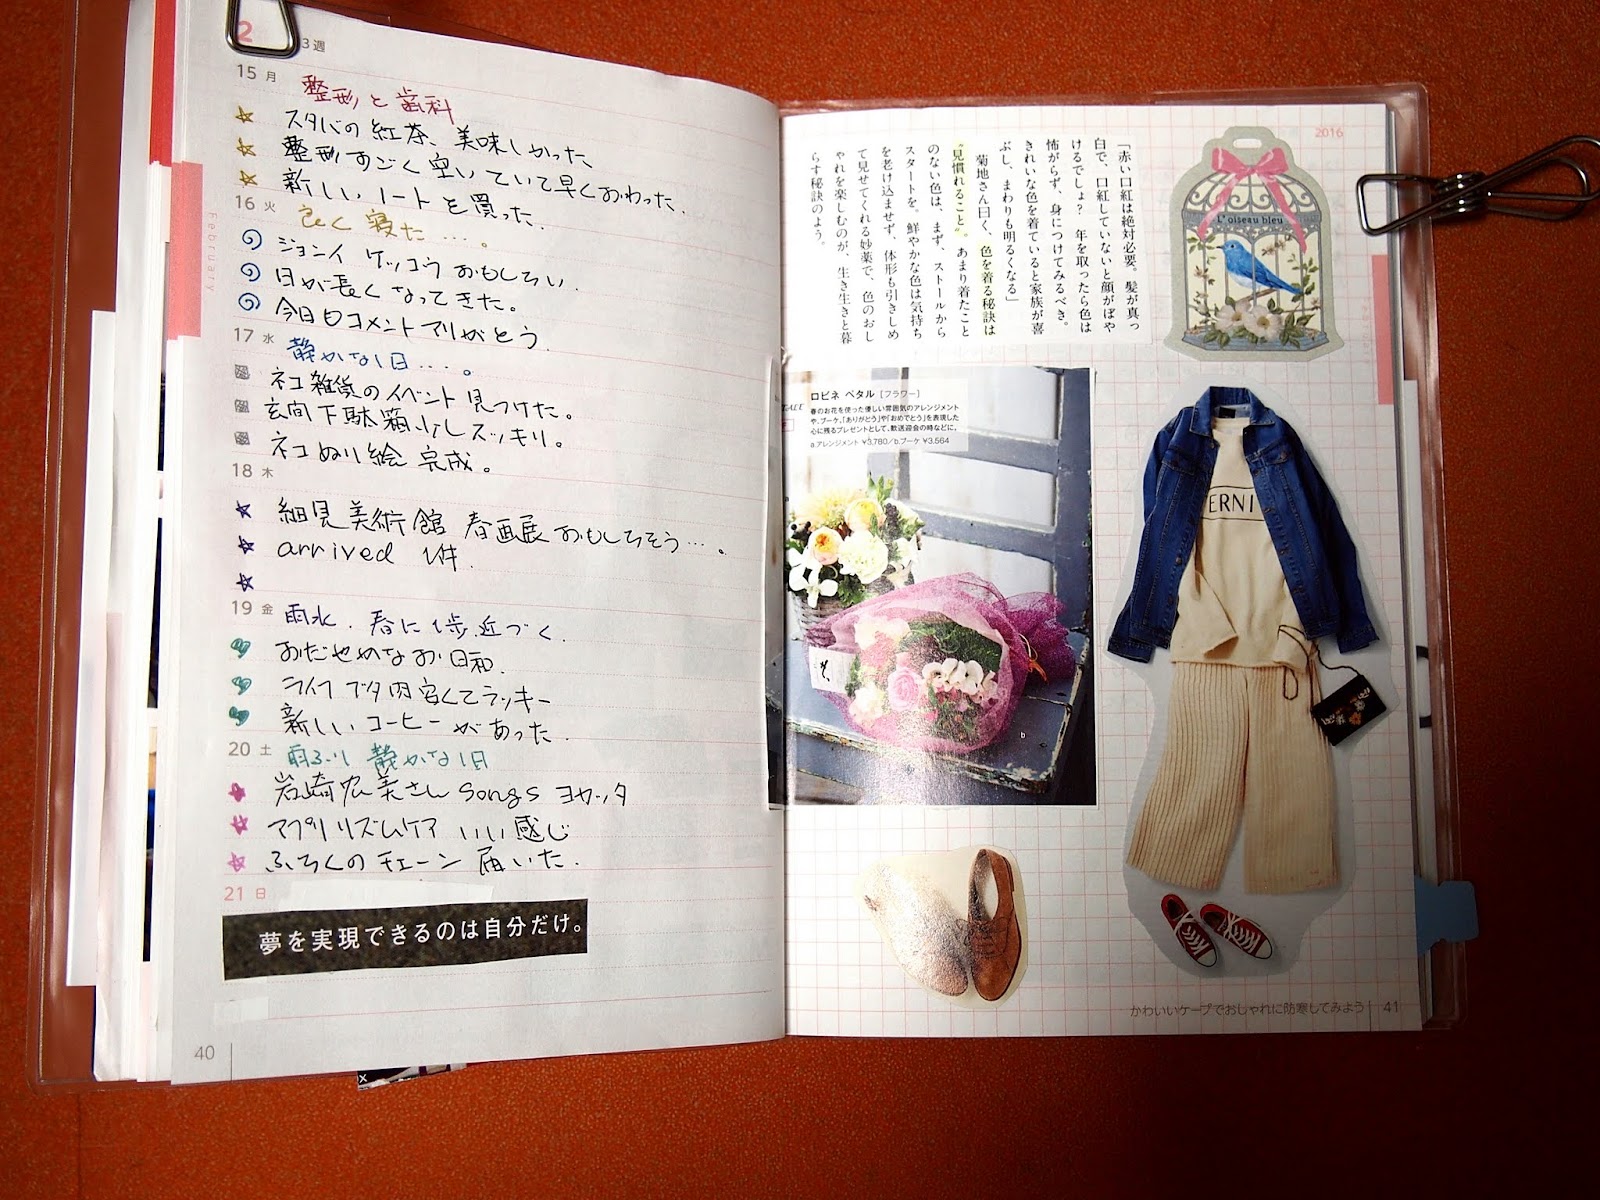 2
3週
15 月
整形と歯科
スタバの紅茶、美味しかった
整形すごく空いていて早くおわった.
新しいノートを買った.
16 火
良く寝た…。
ジョンイ ケッコウおもしろい.
日が長くなってきた。
今日もコメントアリがとう.
17 水
静かな1日…。
ネコ雑貨のイベント見つけた。
玄関下駄箱少しスッキリ。
ネコぬり絵 完成。
18 木
細見美術館 春画展おもしろそう…。
arrived 1件.
19 金
雨水.春に1歩近づく.
おだやかなお日和.
ライフ ブタ肉安くてラッキー
新しいコーヒーがあった.
20 土
雨ふり 静かな1日
岩崎宏美さん songs ヨカッタ
アプリ リズムケア いい感じ
ふろくのチェーン 届いた.
21 日
夢を実現できるのは自分だけ。
40
February
2016
「赤い口紅は絶対必要。髪が真っ
白で、口紅していないと顔がぼや
けるでしょ? 年を取ったら色は
怖がらず、身につけてみるべき。
きれいな色を着ていると家族が喜
ぶし、まわりも明るくなる」
菊地さん曰く、色を着る秘訣は
"見慣れること"。あまり着たこと
のない色は、まず、ストールから
スタートを。鮮やかな色は気持ち
を老け込ませず、体形も引きしめ
て見せてくれる妙薬で、色のおし
ゃれを楽しむのが、生き生きと暮
らす秘訣のよう。
L'oiseau bleu
ロビネ ペタル [フラワー]
春のお花を使った優しい雰囲気のアレンジメント
や、ブーケ。「ありがとう」や「おめでとう」を表現した
心に残るプレゼントとして、歓送迎会の時などに。
a.アレンジメント ¥3,780/b.ブーケ ¥3,564
b
ERNI
かわいいケープでおしゃれに防寒してみよう
41